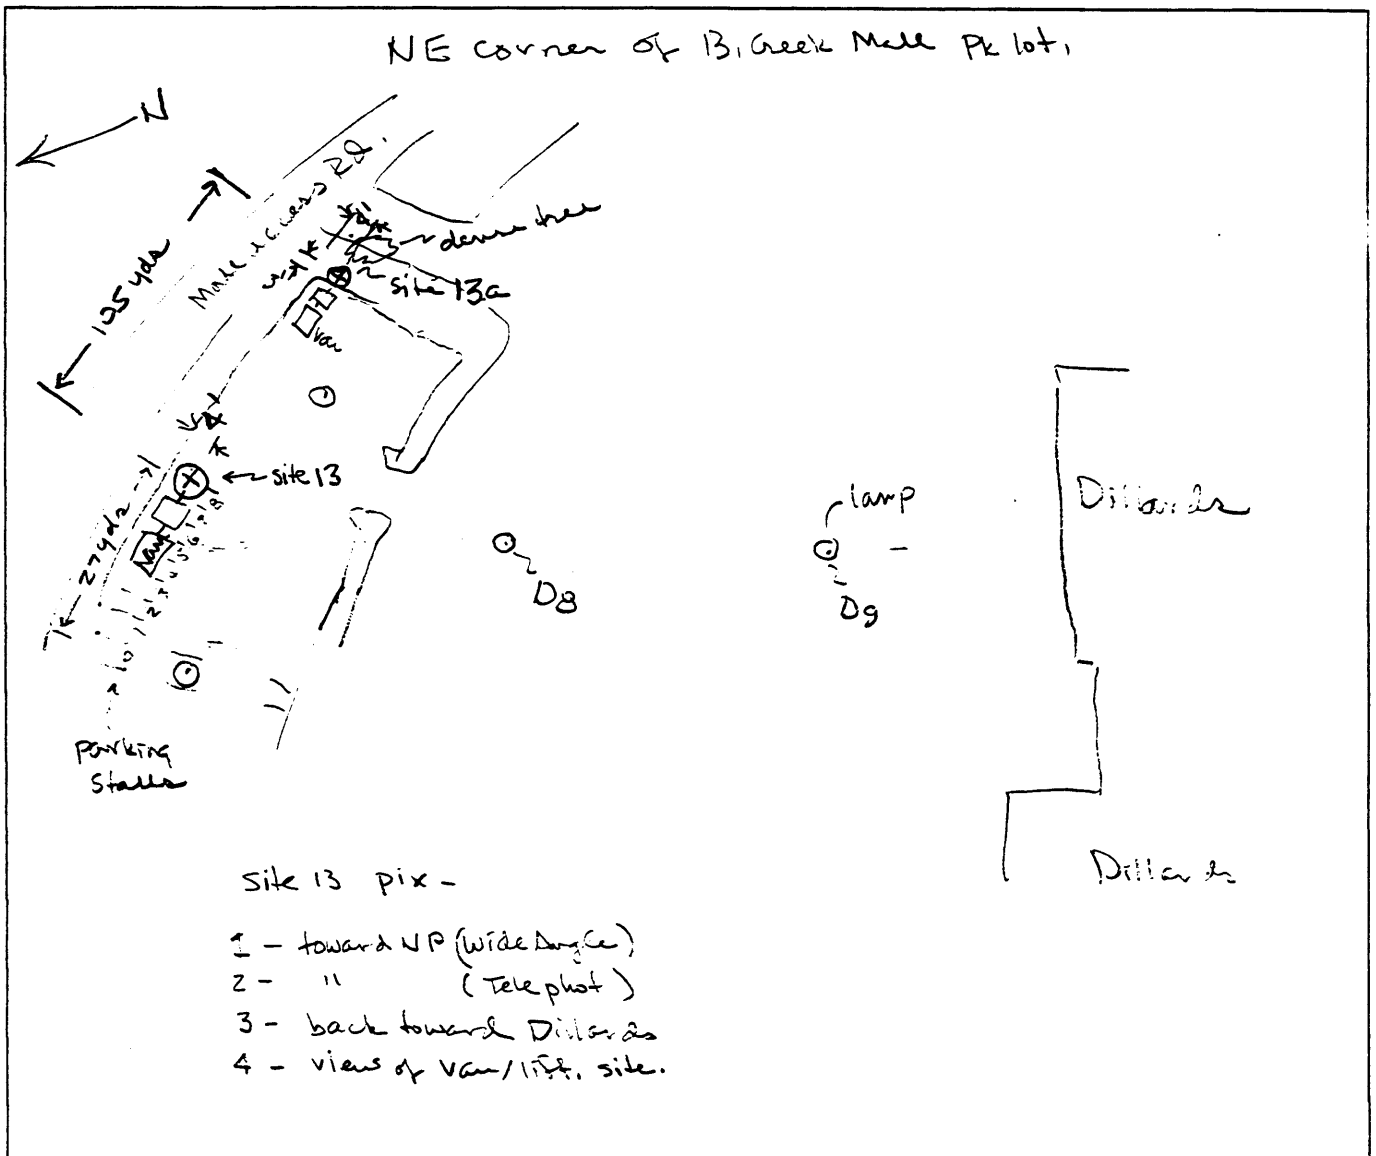 NE corner of B. Creek Mall Pk lot.
N
105 yds
Mall Access Rd.
dense tree
site 13a
van
site 13
27 yds
van
1 2 3 4 5 6 7 8
lamp
Dillards
D8
D9
parking
stalls
Dillards
site 13 pix -
1 - toward NP (Wide Angle)
2 - " (Telephot)
3 - back toward Dillards
4 - views of van/lift, site.